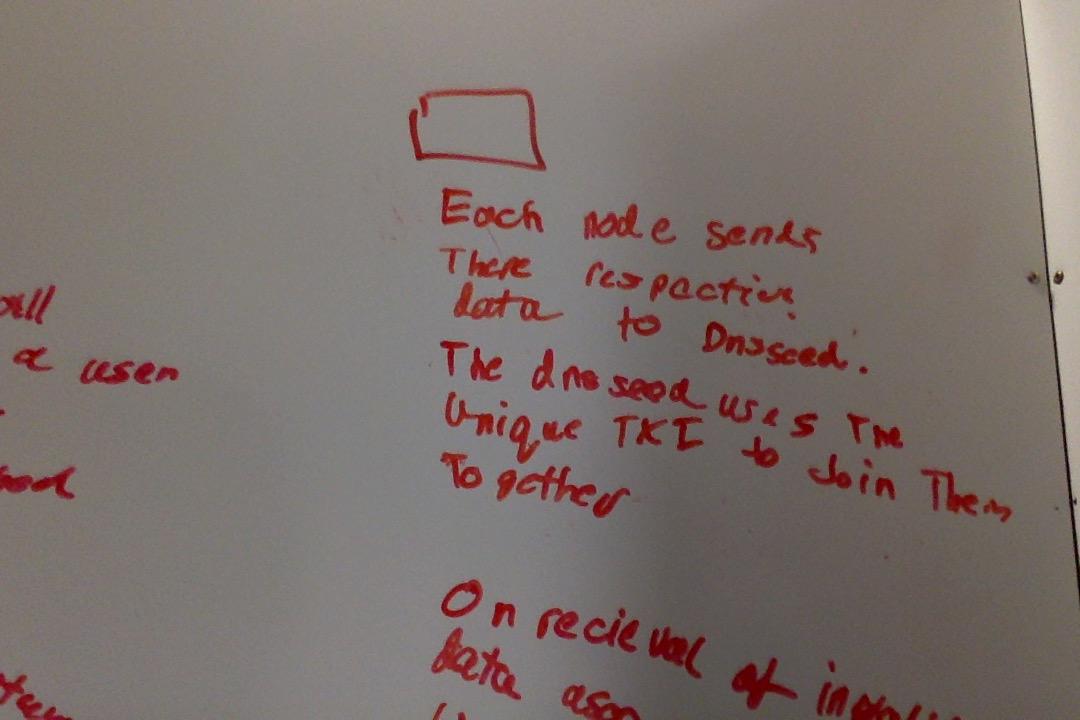 a user
Each node sends
There respective
data to Dnsseed.
The dnsseed uses The
Unique TKI to Join Them
Together
On recieval of
data